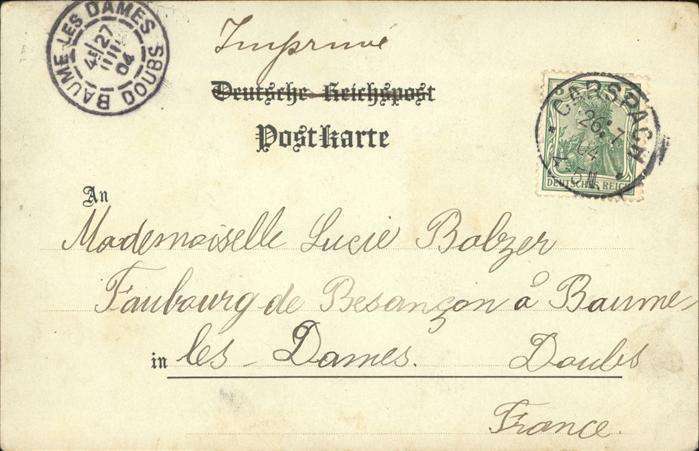 BAUME LES DAMES DOUBS
27
04
Imprimé
Deutsche Reichspost
Postkarte
CARSPACH
26. 7
04
DEUTSCHES REICH
An
Mademoiselle Lucie Balzer
Faubourg de Besançon à Baume-
in les - Dames. Doubs
France.